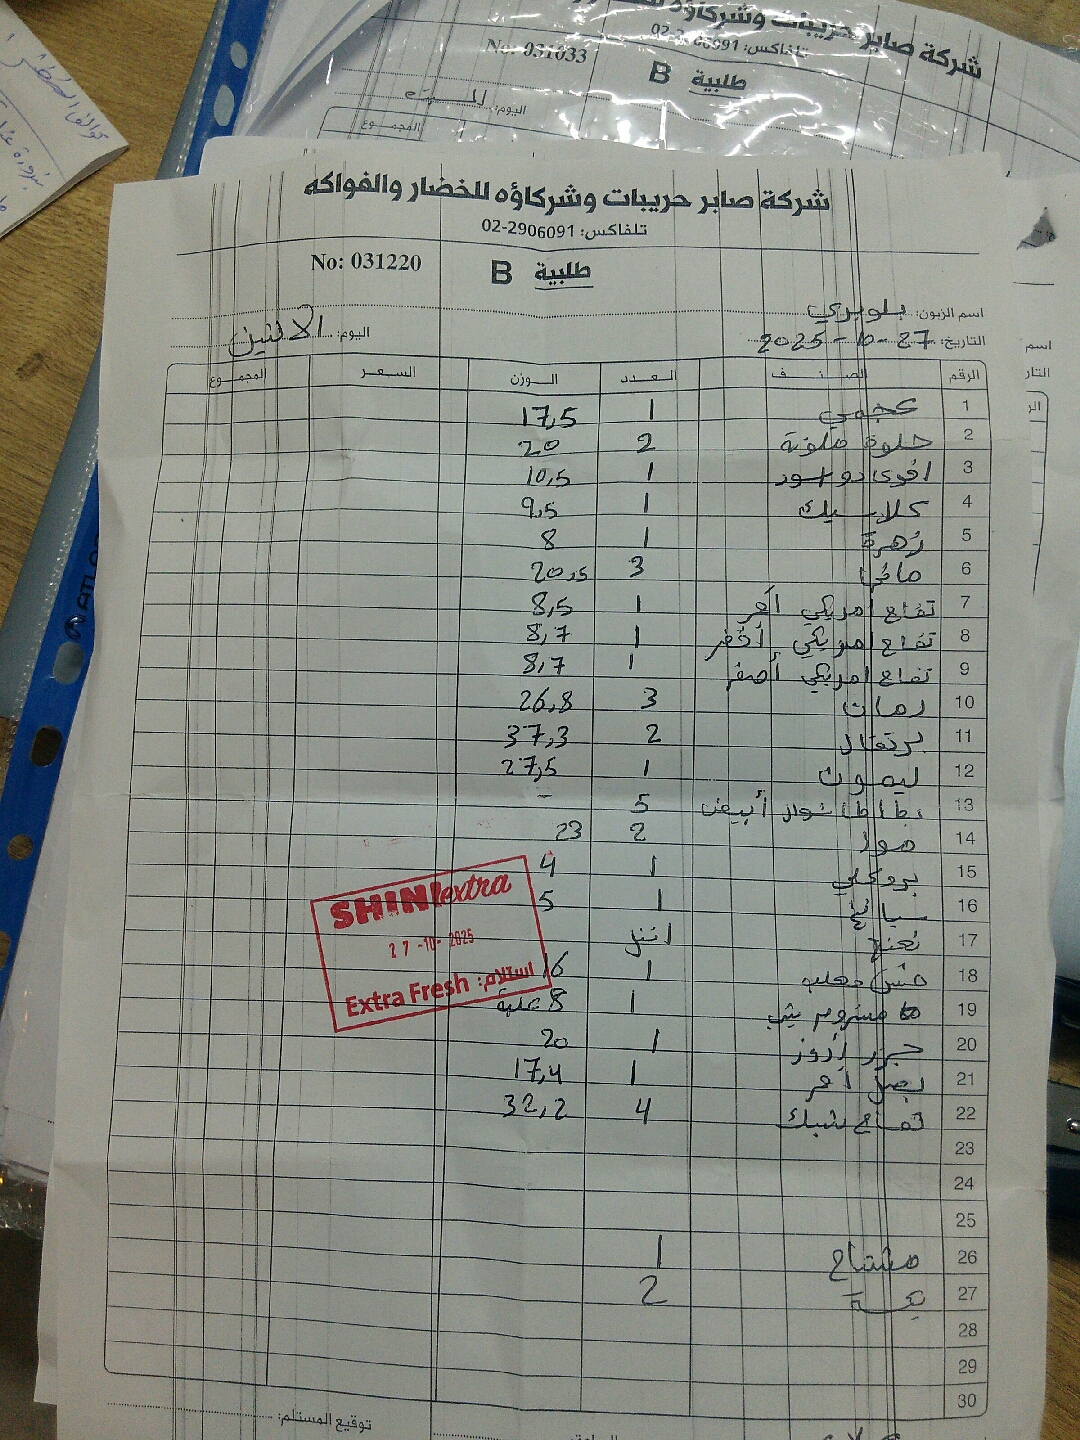 شركة صابر حريبات وشركاؤه للخضار والفواكه
تلفاكس: 02-2906091
No: 031033
طلبية B
اليوم:
المجموع
شركة صابر حريبات وشركاؤه للخضار والفواكه
تلفاكس: 02-2906091
No: 031220
طلبية B
اسم الزبون: بلوبري
التاريخ: 27-10-2025 اليوم: الاثنين
الرقم الصنف العدد الوزن السعر المجموع
1 عجمي 1 17,5
2 حلوة ملونة 2 20
3 1 10,5
4 كلاسيك 1 9,5
5 زهرة 1 8
6 3 20,5
7 تفاح امريكي احمر 1 8,5
8 تفاح امريكي أخضر 1 8,7
9 تفاح امريكي أصفر 1 8,7
10 رمان 3 26,8
11 برتقال 2 37,3
12 ليمون 1 27,5
13 بطاطا أبيض 5 -
14 موز 2 23
15 بروكلي 1 4
16 1 5
17 نعنع
18 1 16
19 مشروم 1 8 علبة
20 جزر 1 20
21 بصل احمر 1 17,4
22 تفاح 4 32,2
23
24
25
26 مشتاح 1
27 2
28
29
30
SHINI extra
27-10-2025
استلام: Extra Fresh
توقيع المستلم: